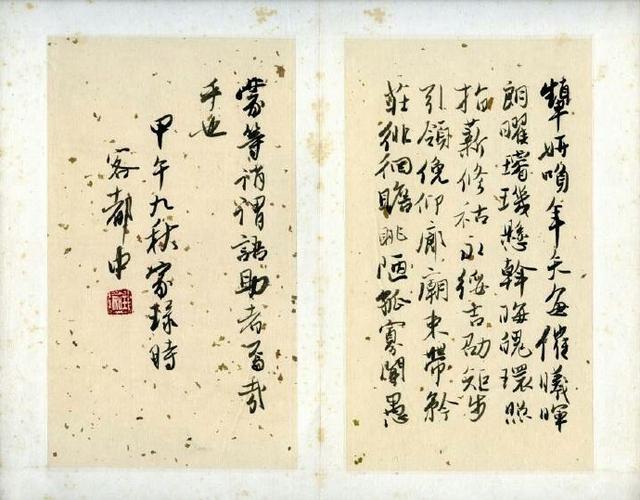 顰妍笑年矢每催曦暉
朗曜璿璣懸斡晦魄環照
指薪修祜永綏吉劭矩步
引領俛仰廊廟束帶矜
莊徘徊瞻眺陋孤寡聞愚
蒙等誚謂語助者焉哉
乎也
甲午九秋家時
客都中